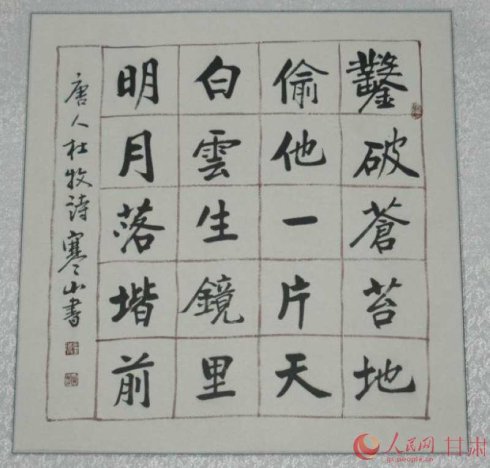 鑿破蒼苔地
偷他一片天
白雲生鏡里
明月落堦前
唐人杜牧詩 寒山書
人民网 甘肃
gs.people.cn